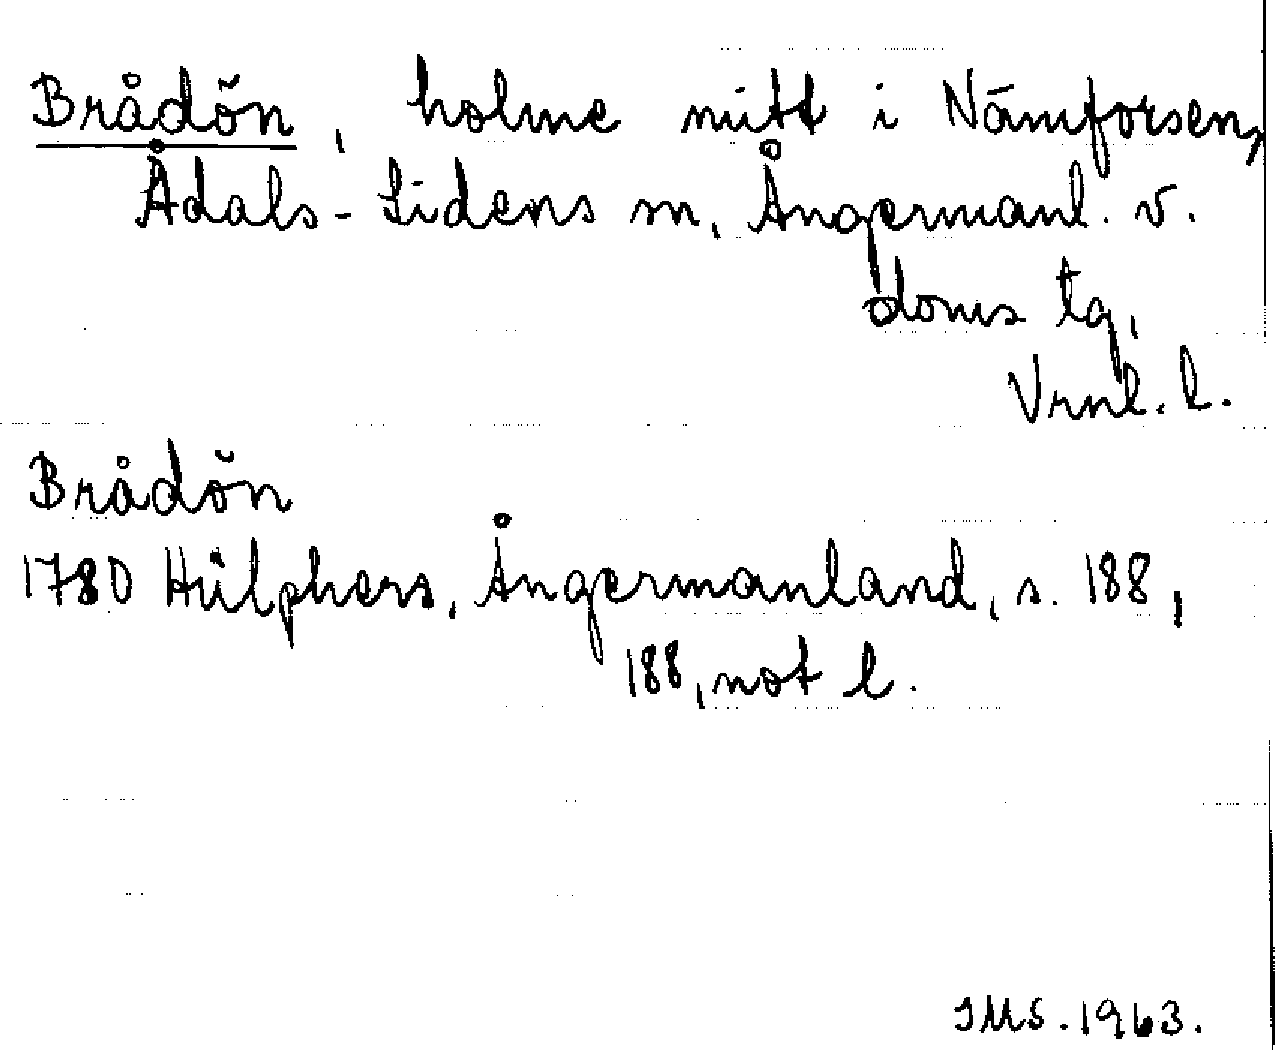 Brådön, holme mitt i Nämforsen,
Ådals-Lidens sn, Ångermanl. v.
doms tg,
Vrnl. l.
Brådön
1780 Hülphers, Ångermanland, s. 188,
188, not l.
IMS. 1963.